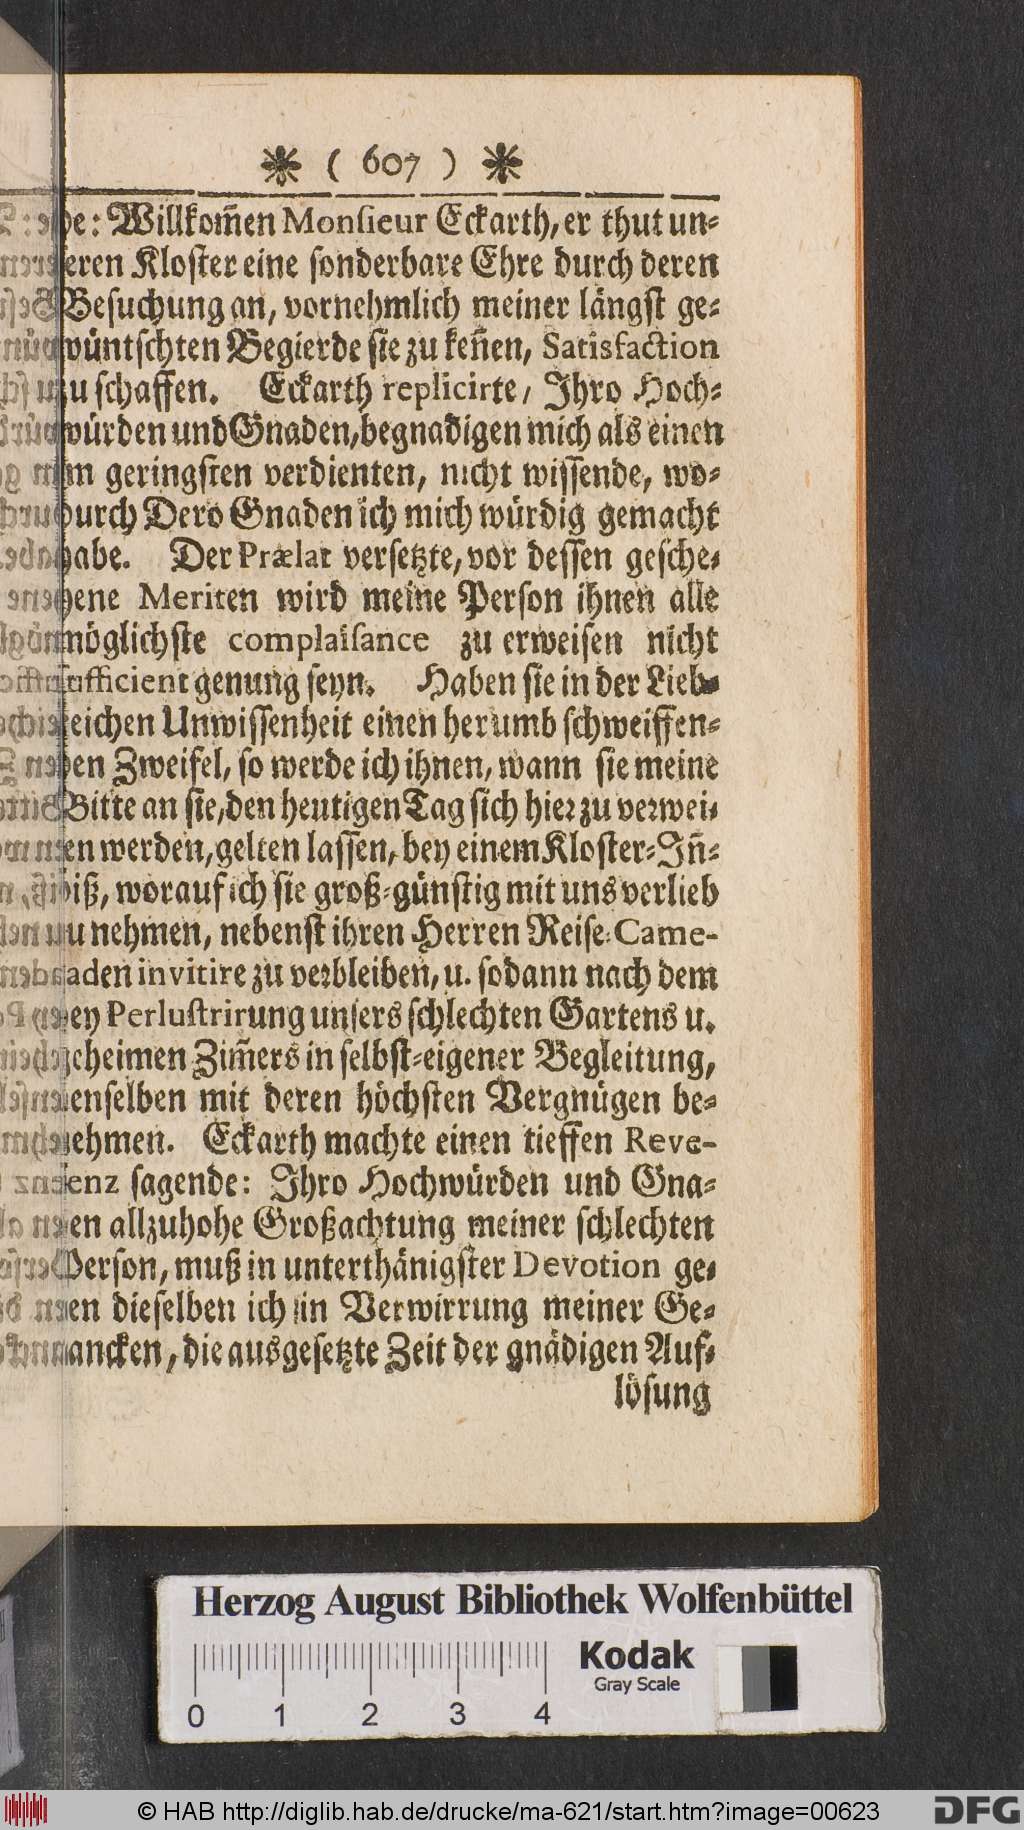 ❋ ( 607 ) ❋
de: Willkom̃en Monſieur Eckarth, er thut un-
ſeren Kloſter eine ſonderbare Ehre durch deren
Beſuchung an, vornehmlich meiner längſt ge-
wüntſchten Begierde ſie zu ken̄en, Satisfaction
zu ſchaffen. Eckarth replicirte / Ihro Hoch-
würden und Gnaden, begnadigen mich als einen
im geringſten verdienten, nicht wiſſende, wo-
durch Dero Gnaden ich mich würdig gemacht
habe. Der Prælat verſetzte, vor deſſen geſche-
hene Meriten wird meine Perſon ihnen alle
möglichſte complaiſance zu erweiſen nicht
ſufficient genung ſeyn. Haben ſie in der Lieb-
reichen Unwiſſenheit einen herumb ſchweiffen-
den Zweifel, ſo werde ich ihnen, wann ſie meine
Bitte an ſie, den heutigen Tag ſich hier zu verwei-
len werden, gelten laſſen, bey einem Kloſter-Im̃-
biß, worauf ich ſie groß-günſtig mit uns verlieb
zu nehmen, nebenſt ihren Herren Reiſe-Came-
raden invitire zu verbleiben, u. ſodann nach dem
bey Perluſtrirung unſers ſchlechten Gartens u.
geheimen Zim̃ers in ſelbſt-eigener Begleitung,
denſelben mit deren höchſten Vergnügen be-
nehmen. Eckarth machte einen tieffen Reve-
renz ſagende: Ihro Hochwürden und Gna-
den allzuhohe Großachtung meiner ſchlechten
Perſon, muß in unterthänigſter Devotion ge-
gen dieſelben ich in Verwirrung meiner Ge-
dancken, die ausgeſetzte Zeit der gnädigen Auf-
löſung
Herzog August Bibliothek Wolfenbüttel
Kodak
Gray Scale
0 1 2 3 4
© HAB http://diglib.hab.de/drucke/ma-621/start.htm?image=00623
DFG